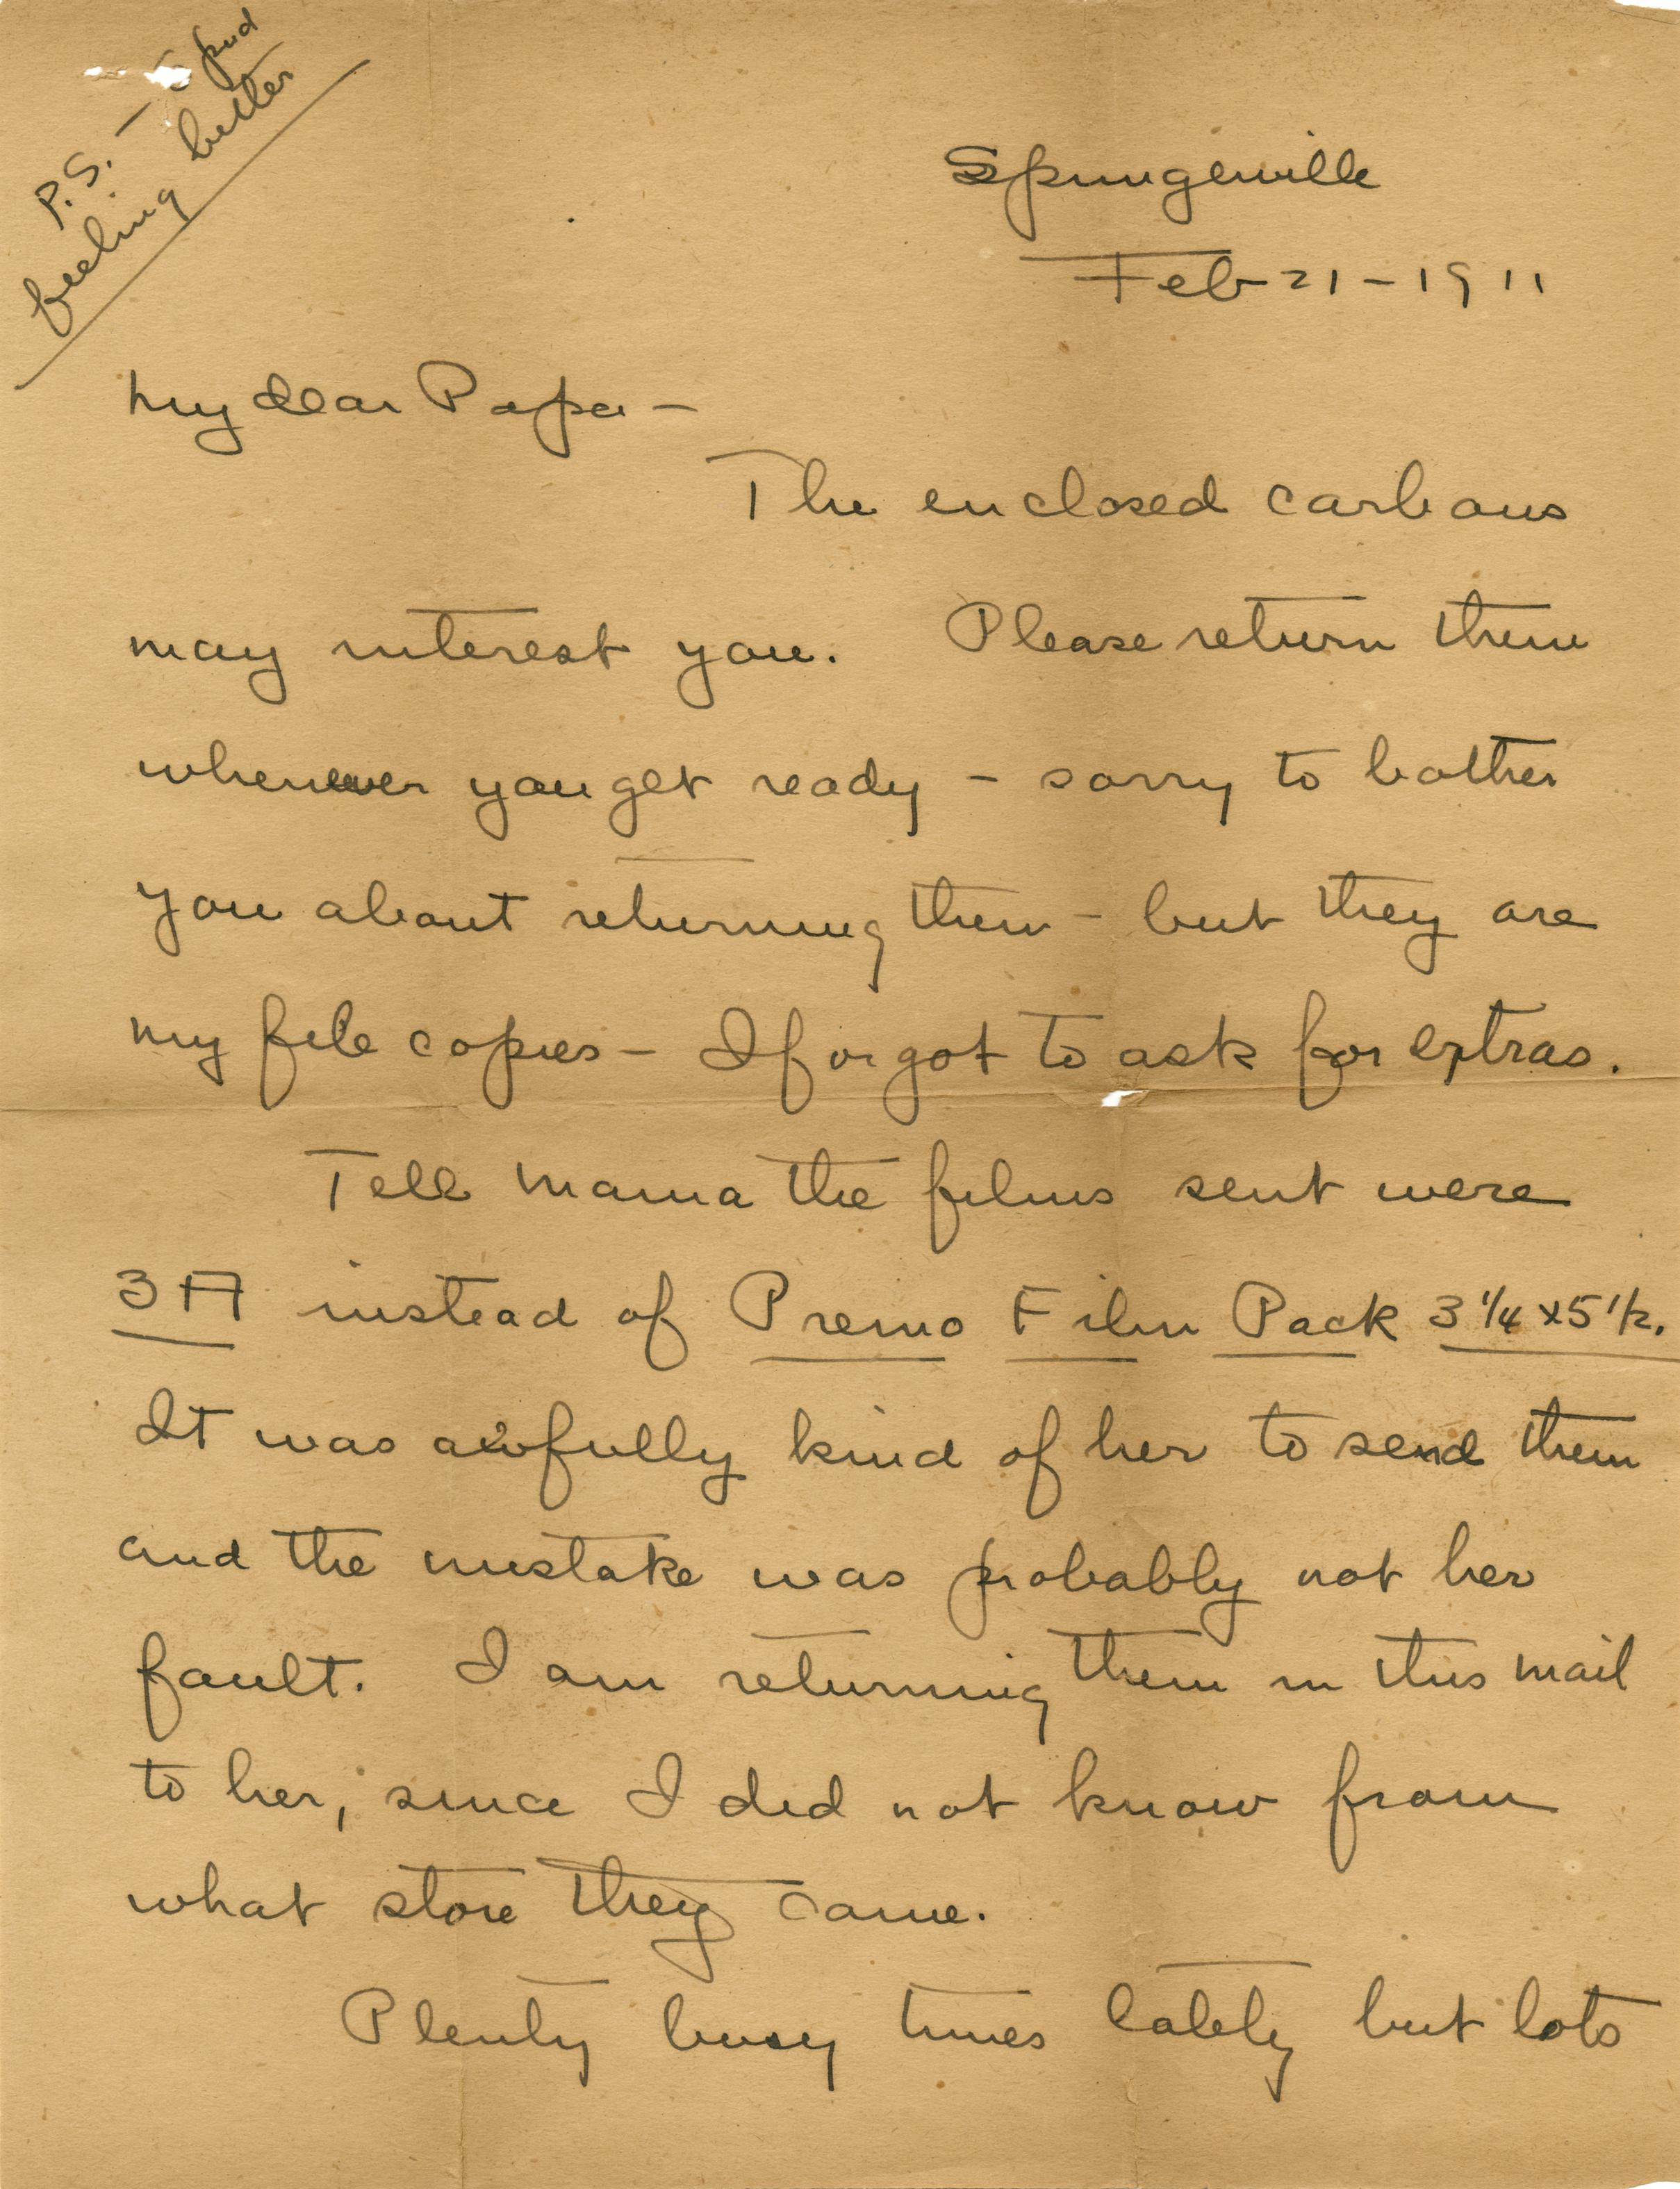 P.S. — Spud
feeling better
Springerville
Feb 21 - 1911
My dear Papa —
The enclosed carbons
may interest you. Please return them
whenever you get ready — sorry to bother
you about returning them — but they are
my file copies — I forgot to ask for extras.
Tell Mama the films sent were
3A instead of Premo Film Pack 3 1/4 x 5 1/2.
It was awfully kind of her to send them
and the mistake was probably not her
fault. I am returning them in this mail
to her, since I did not know from
what store they came.
Plenty busy times lately but lots